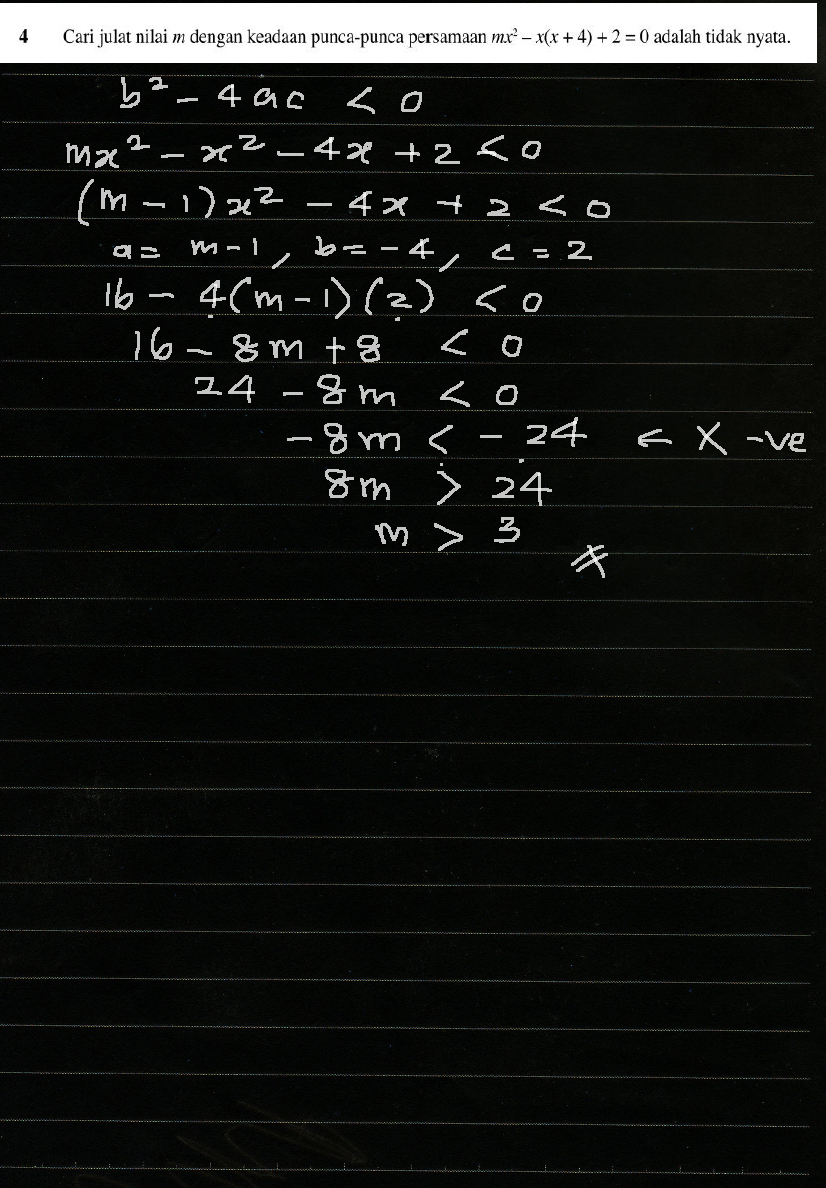 4 Cari julat nilai m dengan keadaan punca-punca persamaan mx² – x(x + 4) + 2 = 0 adalah tidak nyata.
b² - 4ac < 0
mx² - x² - 4x + 2 < 0
(m - 1)x² - 4x + 2 < 0
a = m - 1, b = -4, c = 2
16 - 4(m - 1)(2) < 0
16 - 8m + 8 < 0
24 - 8m < 0
-8m < -24 ← X -ve
8m > 24
m > 3